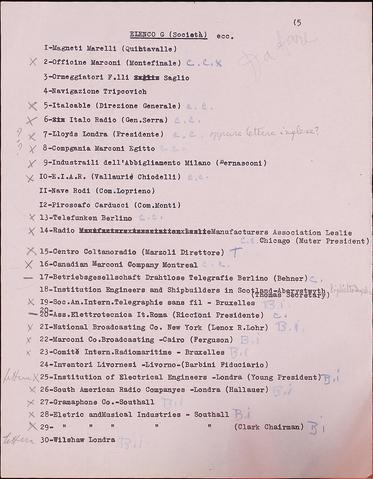 15
già dare
ELENCO G (Società) ecc.
1-Magneti Marelli (Quintavalle)
X 2-Officine Marconi (Montefinale) C.C.X
3-Ormeggiatori F.lli Saglio
4-Navigazione Tripcovich
X 5-Italcable (Direzione Generale) C.C.
X 6- Italo Radio (Gen.Serra) C.C.
? X 7-Lloyds Londra (Presidente) C.C. oppure lettera inglese?
? X 8-Compgania Marconi Egitto C.C.
X 9-Industraili dell'Abbigliamento Milano (Bernasconi)
X 10-E.I.A.R. (Vallauri Chiodelli) C.C.
11-Nave Rodi (Com.Loprieno)
12-Piroscafo Carducci (Com.Monti)
X 13-Telefunken Berlino C.C.
X 14-Radio Manufacturers Association Leslie
C.C. Chicago (Muter President)
X 15-Centro Coltanoradio (Marzoli Direttore) T
X 16-Canadian Marconi Company Montreal C.C.
— 17-Betriebsgesellschaft Drahtlose Telegrafie Berlino (Behner) C.
18-Institution Engineers and Shipbuilders in Scotland-Aberystwyth
(Thomas Secretary)
X 19-Soc.An.Intern.Telegraphie sans fil - Bruxelles B.i
— 20-Ass.Elettrotecnica It.Roma (Riccioni Presidente) C.
X 21-National Broadcasting Co. New York (Lenox R.Lohr) B.i
X 22-Marconi Co.Broadcasting -Cairo (Ferguson) B.i
X 23-Comité Intern.Radiomaritime - Bruxelles B.i
24-Inventori Livornesi -Livorno-(Barbini Fiduciario)
lettera X 25-Institution of Electrical Engineers -London (Young President) B.i
X 26-South American Radio Companyes -Londra (Hallauer) B.i
X 27-Gramaphone Co.-Southall B.i
X 28-Eletric andMusical Industries - Southall B.i
X 29- " " " " (Clark Chairman) B.i
lettera 30-Wilshaw Londra B.i